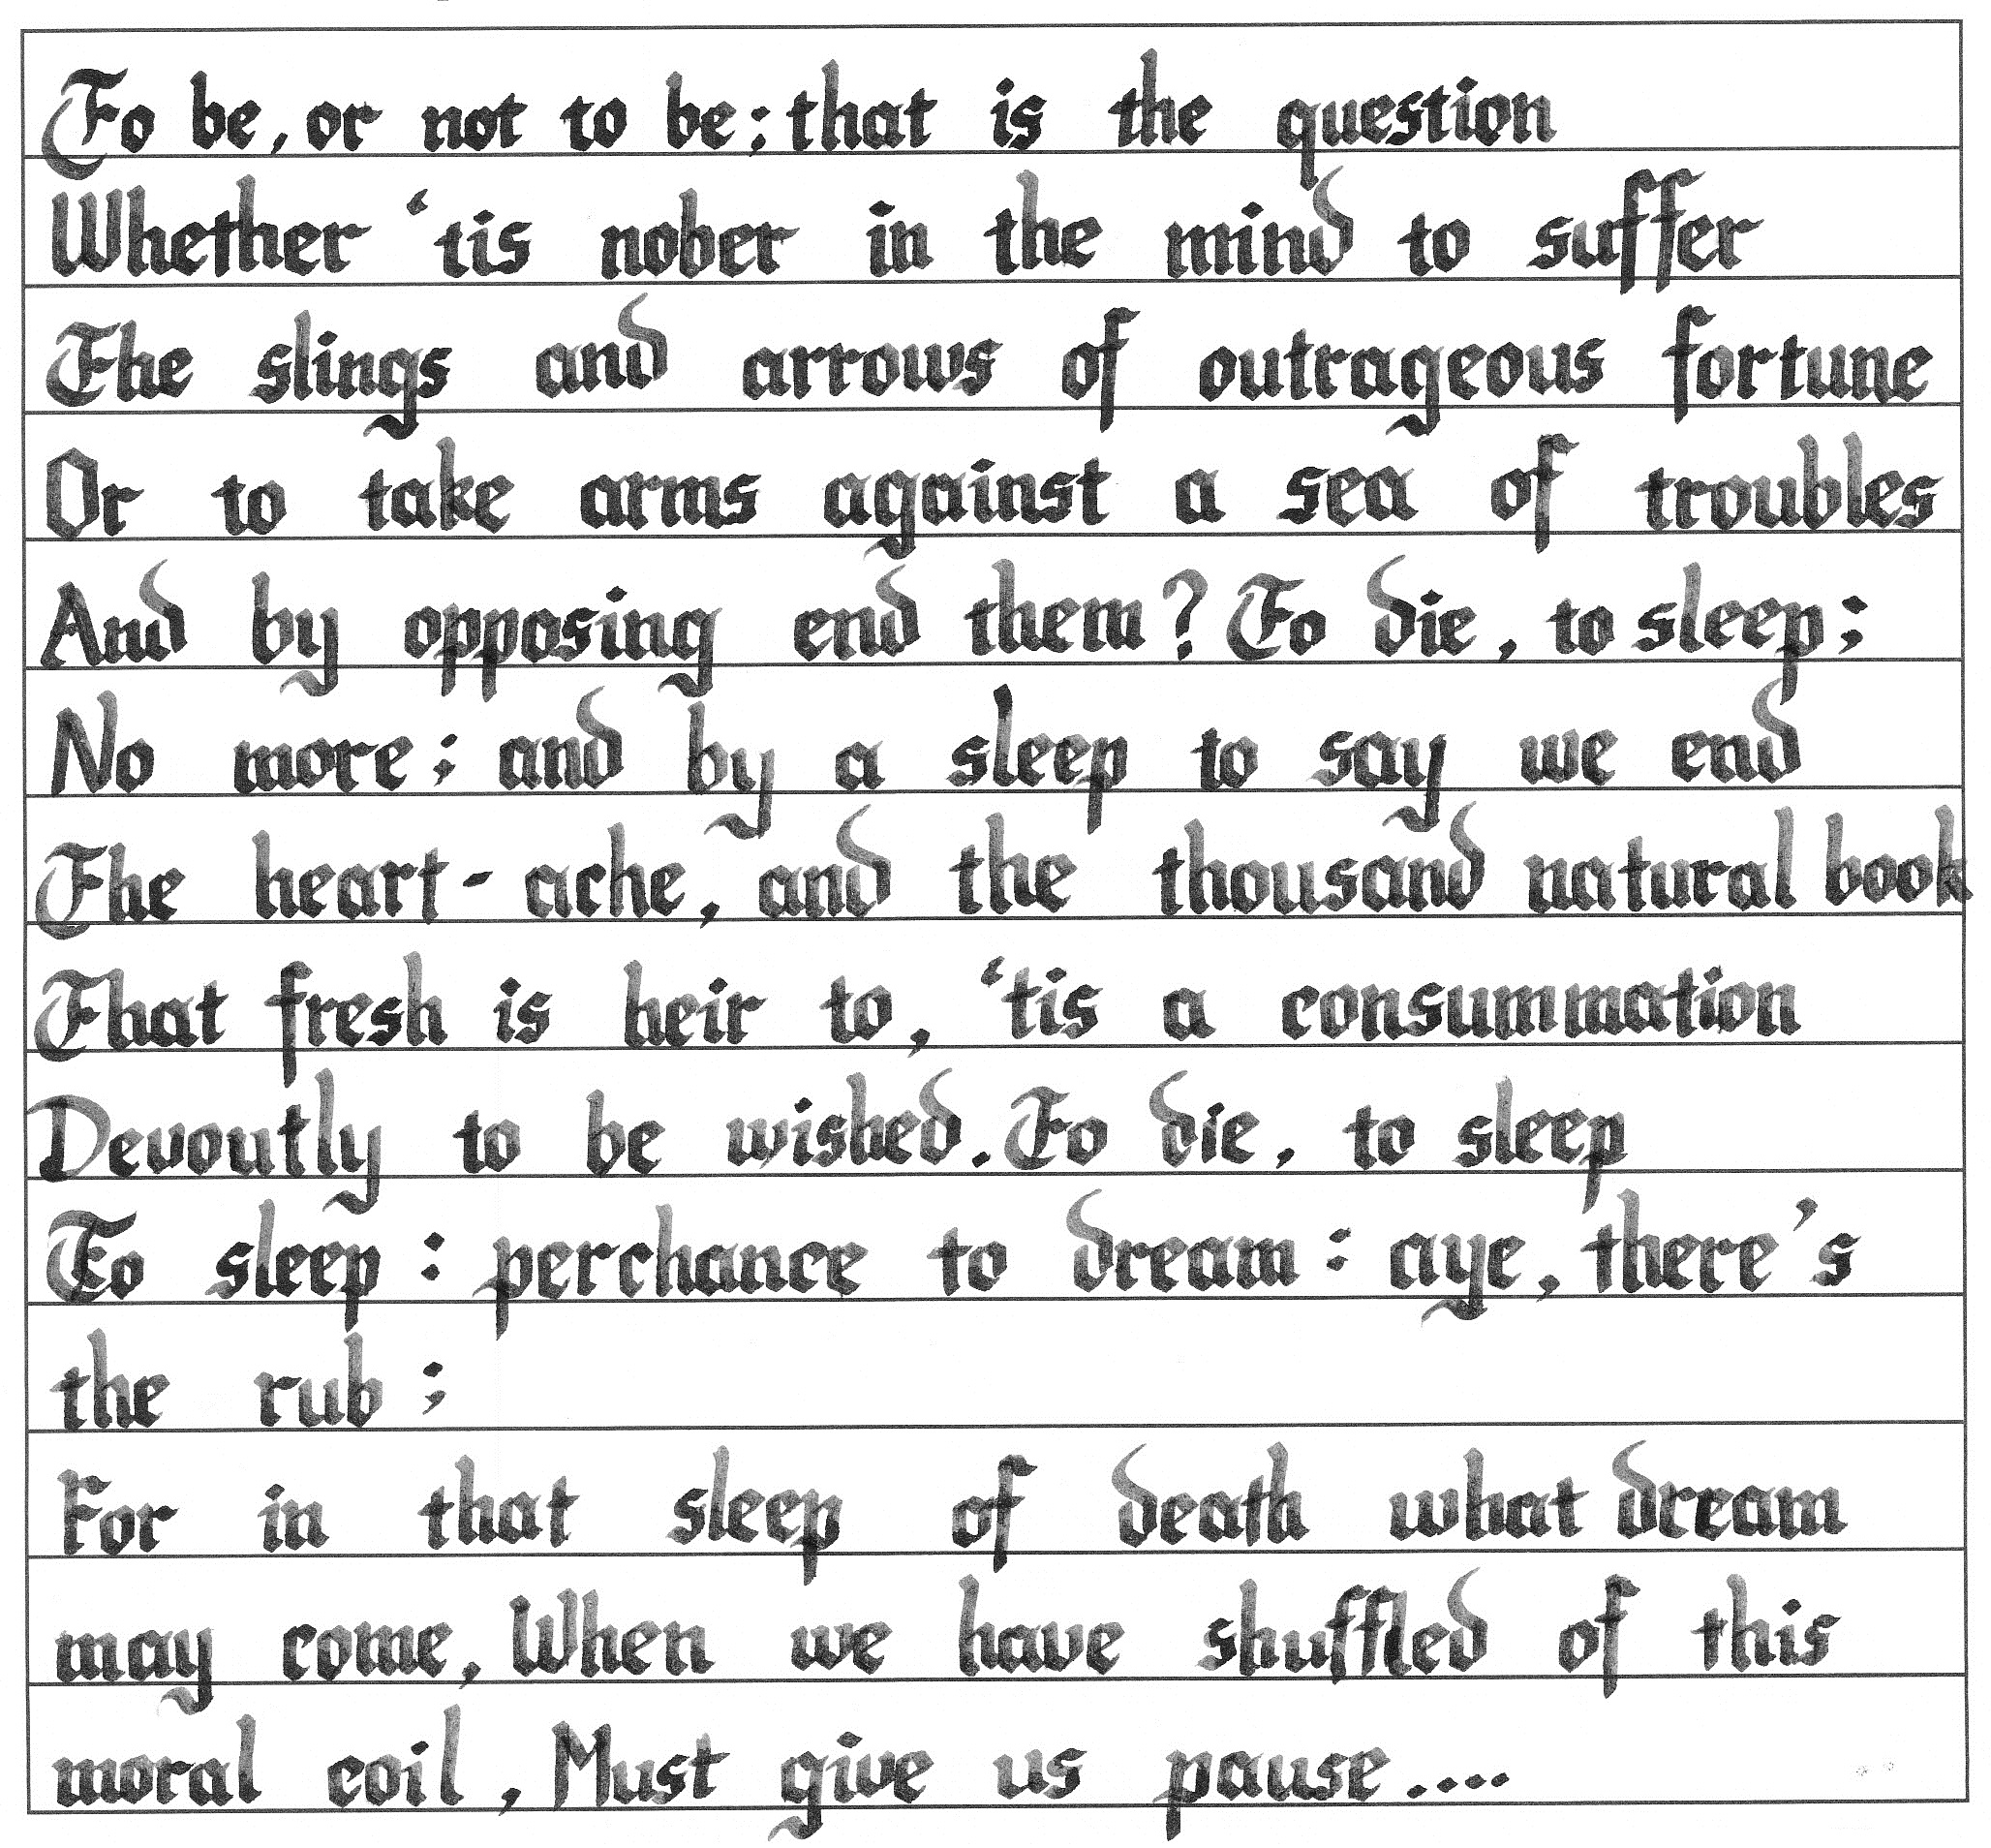 To be, or not to be; that is the question
Whether ‘tis nober in the mind to suffer
The slings and arrows of outrageous fortune
Or to take arms against a sea of troubles
And by opposing end them? To die, to sleep;
No more; and by a sleep to say we end
The heart-ache, and the thousand natural book
That fresh is heir to, ‘tis a consummation
Devoutly to be wished. To die, to sleep
To sleep: perchance to dream: aye, there’s
the rub;
For in that sleep of death what dream
may come, When we have shuffled of this
moral coil, Must give us pause....